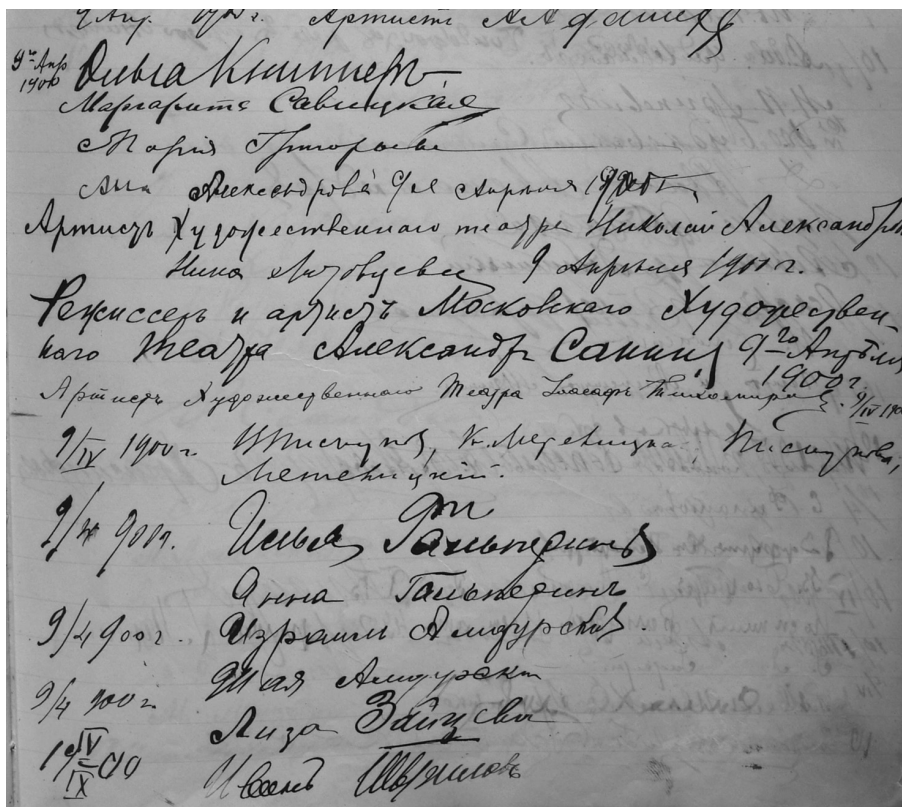 Артистъ А. Адашевъ
9го Апр 1900 Ольга Книпперъ
Маргарита Савицкая
Марія Григорьева
Александрова 9го Апрѣля 1900 г.
Артистъ Художественнаго театра Николай Александровъ
Нина Литовцева 9 Апрѣля 1900 г.
Режиссеръ и артистъ Московскаго Художествен-
наго Театра Александръ Санинъ 9го Апрѣля
1900 г.
Артистъ Художественнаго Театра Іоасафъ Тихомировъ. 9/IV 1900
9/IV 1900 г.
9/4 900 г. Илья Гальперинъ
Анна Гальперинъ
9/4 900 г. Израиль Амдурскій
9/4 900 г. Амдурскій
Лиза Зайцева
Иванъ